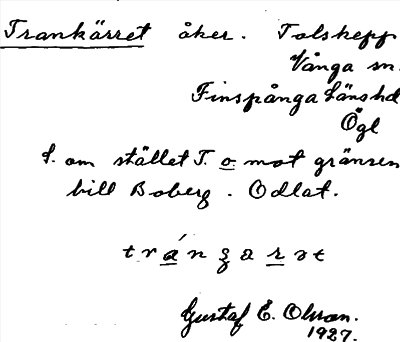 Trankärret åker. Tolskepp
Vånga sn.
Finspånga Länshd
Ögl
S. om stället T. o mot gränsen
till Boberg. Odlat.
Gustaf E. Olsson.
1927.